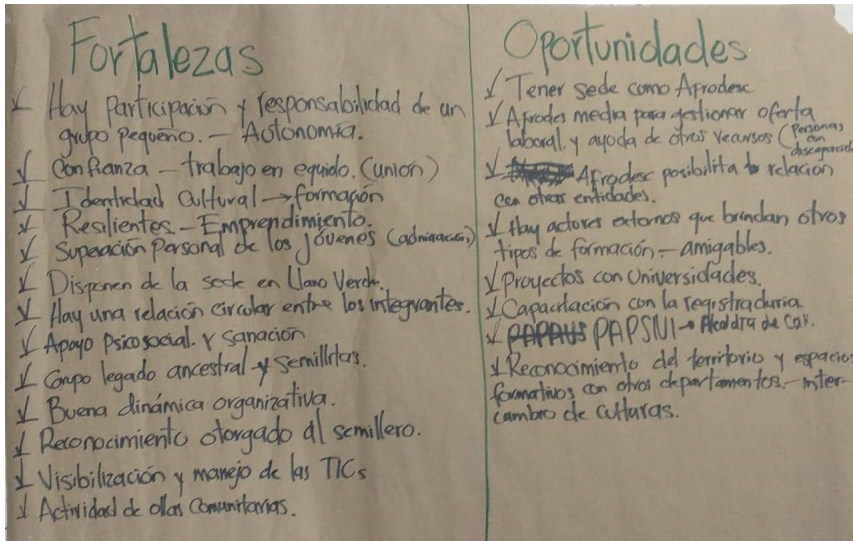 Fortalezas
✓ Hay participación y responsabilidad de un
grupo pequeño. – Autonomía.
✓ Confianza – trabajo en equido. (unión)
✓ Identidad Cultural → formación
✓ Resilientes. – Emprendimiento.
✓ Superación Personal de los jóvenes (admiración)
✓ Disponen de la sede en Llano Verde.
✓ Hay una relación circular entre los integrantes.
✓ Apoyo Psicosocial. Y sanación
✓ Grupo legado ancestral y semillitas.
✓ Buena dinámica organizativa.
✓ Reconocimiento otorgado al semillero.
✓ Visibilización y manejo de las TICs
✓ Actividad de ollas comunitarias.
Oportunidades
✓ Tener sede como Afrodesc
✓ Afrodes media para gestionar oferta
laboral. y ayuda de otros recursos (Personas
con
discapacid
✓ Afrodesc posibilita relación
con otras entidades.
✓ Hay actores externos que brindan otros
tipos de formación – amigables.
✓ Proyectos con Universidades.
✓ Capacitación con la registraduria
✓ PAPSIVI → Alcaldía de Cali.
✓ Reconocimiento del territorio y espacios
formativos con otros departamentos. – inter-
cambio de culturas.